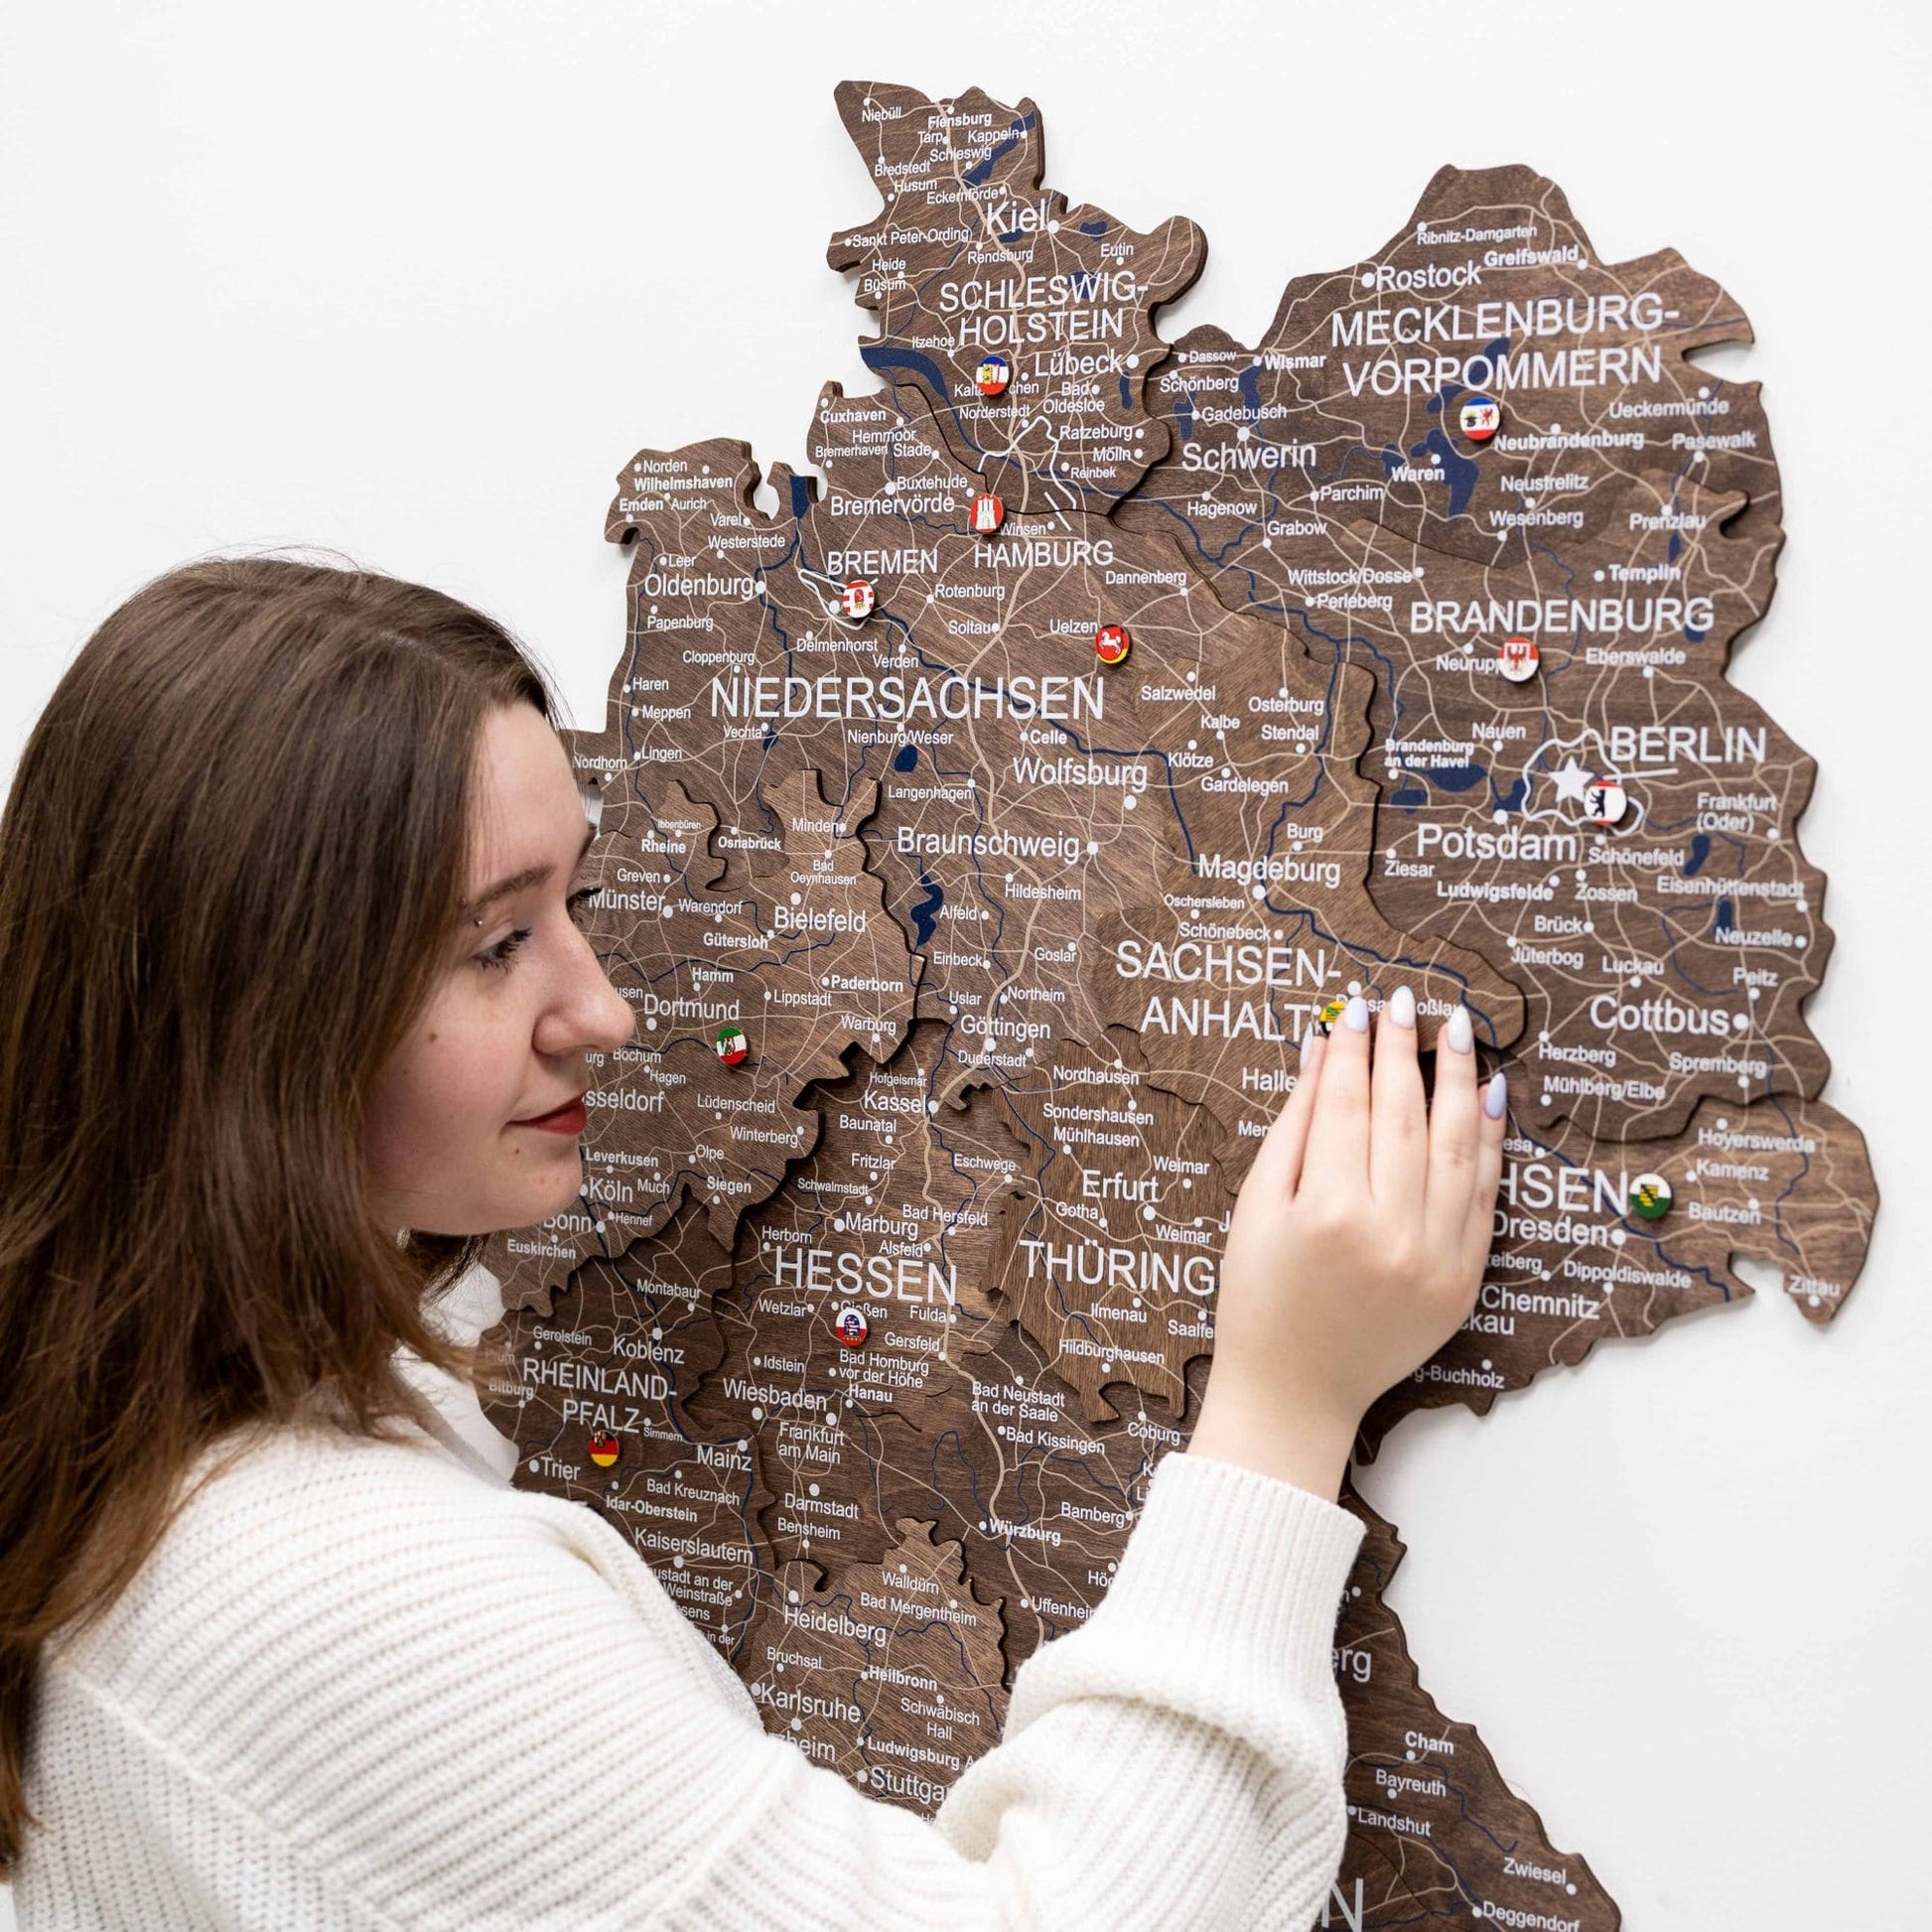 Niebüll
Flensburg
Tarp
Kappeln
Schleswig
Bredstedt
Husum
Eckernförde
Kiel
Sankt Peter-Ording
Rendsburg
Eutin
Heide
Büsum
SCHLESWIG-
HOLSTEIN
Itzehoe
Lübeck
Bad
Oldesloe
Norderstedt
Ratzeburg
Mölln
Reinbek
Ribnitz-Damgarten
Greifswald
Rostock
MECKLENBURG-
VORPOMMERN
Dassow
Wismar
Schönberg
Gadebusch
Schwerin
Ueckermünde
Neubrandenburg
Pasewalk
Waren
Neustrelitz
Parchim
Hagenow
Wesenberg
Prenzlau
Grabow
Cuxhaven
Hemmoor
Bremerhaven
Stade
Norden
Wilhelmshaven
Emden
Aurich
Buxtehude
Bremervörde
Varel
Winsen
Westerstede
BREMEN
HAMBURG
Leer
Oldenburg
Dannenberg
Rotenburg
Papenburg
Soltau
Uelzen
Delmenhorst
Cloppenburg
Verden
Haren
NIEDERSACHSEN
Meppen
Vechta
Nienburg/Weser
Celle
Lingen
Nordhorn
Wolfsburg
Langenhagen
Wittstock/Dosse
Templin
Perleberg
BRANDENBURG
Eberswalde
Salzwedel
Osterburg
Kalbe
Stendal
Klötze
Gardelegen
Nauen
Brandenburg
an der Havel
BERLIN
Frankfurt
(Oder)
Burg
Potsdam
Schönefeld
Magdeburg
Ziesar
Ludwigsfelde
Zossen
Eisenhüttenstadt
Ibbenbüren
Rheine
Osnabrück
Minden
Bad
Oeynhausen
Braunschweig
Greven
Münster
Warendorf
Bielefeld
Gütersloh
Hildesheim
Alfeld
Oschersleben
Schönebeck
Brück
Neuzelle
Jüterbog
Luckau
Peitz
Einbeck
Goslar
SACHSEN-
ANHALT
Hamm
Paderborn
Lippstadt
Dortmund
Warburg
Uslar
Northeim
Göttingen
Duderstadt
Cottbus
Herzberg
Spremberg
Mühlberg/Elbe
Bochum
Hagen
Hofgeismar
Kassel
Nordhausen
Halle
Lüdenscheid
Baunatal
Sondershausen
Mühlhausen
Winterberg
Hoyerswerda
Kamenz
Leverkusen
Olpe
Fritzlar
Eschwege
Weimar
Köln
Much
Siegen
Schwalmstadt
Erfurt
Bautzen
Bonn
Hennef
Marburg
Bad Hersfeld
Gotha
Weimar
Dresden
Euskirchen
Herborn
Alsfeld
HESSEN
Dippoldiswalde
Zittau
Montabaur
Wetzlar
Gießen
Fulda
Ilmenau
Chemnitz
Gerolstein
Koblenz
Gersfeld
Hildburghausen
Prüm
RHEINLAND-
PFALZ
Bitburg
Simmern
Idstein
Bad Homburg
vor der Höhe
Wiesbaden
Hanau
Bad Neustadt
an der Saale
Frankfurt
am Main
Bad Kissingen
Coburg
Trier
Mainz
Bad Kreuznach
Idar-Oberstein
Darmstadt
Bensheim
Bamberg
Würzburg
Kaiserslautern
Weinstraße
Walldürn
Bad Mergentheim
Heidelberg
Bruchsal
Heilbronn
Karlsruhe
Schwäbisch
Hall
Ludwigsburg
Cham
Bayreuth
Landshut
Zwiesel
Deggendorf